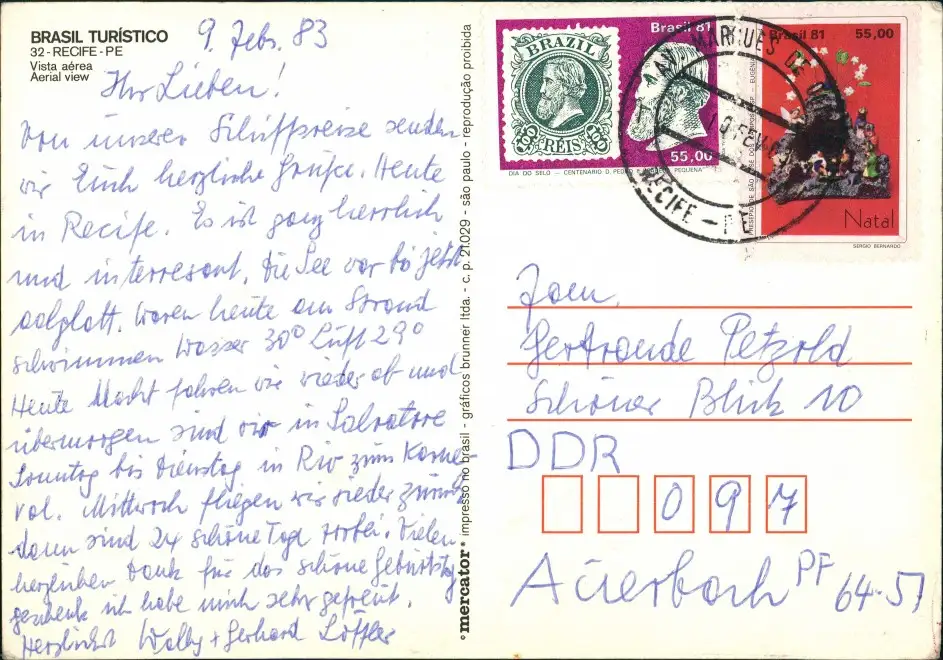 BRASIL TURÍSTICO
32 - RECIFE - PE
Vista aérea
Aerial view
9. Febr. 83
Ihr Lieben!
Von unserer Schiffsreise senden
wir Euch herzliche Grüße. Heute
in Recife. Es ist ganz herrlich
und interresant. Die See war bis jetzt
aalglatt. Waren heute am Strand
schwimmen Wasser 30° Luft 29°
Heute Nacht fahren wir wieder ab und
übermorgen sind wir in Salvatore
Sonntag bis Dienstag in Rio zum Karne-
val. Mittwoch fliegen wir wieder zurück
dann sind 24 schöne Tage vorbei. Vielen
herzlichen Dank für das schöne Geburtstags
geschenk ich habe mich sehr gefreut.
Herzlichst Wally + Gerhard Löffler
mercator impresso no brasil - gráficos brunner ltda. - c. p. 21.029 - são paulo - reprodução proibida
BRAZIL
RÉIS
Brasil 81
55,00
DIA DO SELO - CENTENÁRIO D. PEDRO II
PEQUENA
Brasil 81 55,00
Natal
SERGIO BERNARDO
MARQUES DE
RECIFE - PE
Fam.
Gertraude Petzold
Schöner Blick 10
DDR
0 9 7
Auerbach PF 64-51